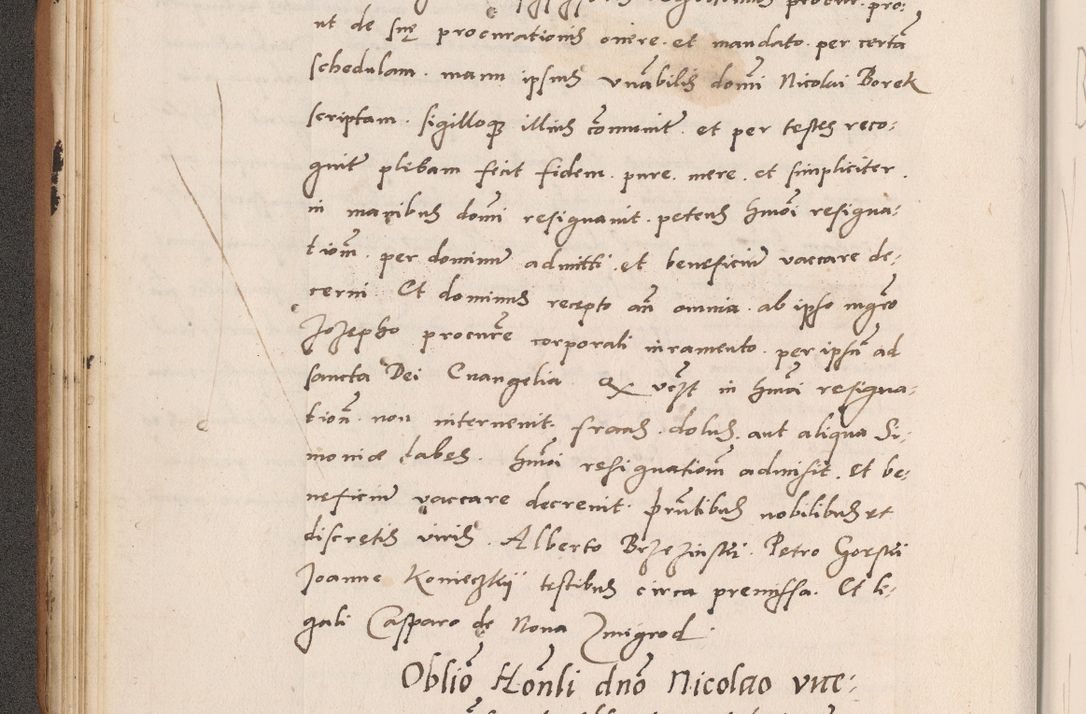 ut de suę procurationis onere et mandato per certã
schedulam manu ipsius vñabilis domĩ Nicolai Borek
scriptam sigilloque illius cõmunite et per testes reco:
gnite plibam fecit fidem pure mere et simpliciter
in manibus domĩ resignauit petens hmõi resigna:
tionẽ per dominum admitti et beneficium vaccare de:
cerni Et dominus recepto añ omnia ab ipso mgco
Jozepho procure corporali iuramento per ipsũ ad
sancta Dei Euangelia Ex vẽst in hmõi resigna:
tioñ non interuenit fraus dolus aut aliqua Si:
moniæ labes hmõi resignationẽ admisit Et be:
neficium vaccare decreuit pñtibus nobilibus et
discretis viris Alberto Brzezinski Petro Gorski
Joanne Konieczkÿ testibus circa premissa Et le:
gali Casparo de Noua Zmigrod
Oblio Honli dno Nicolao vice: